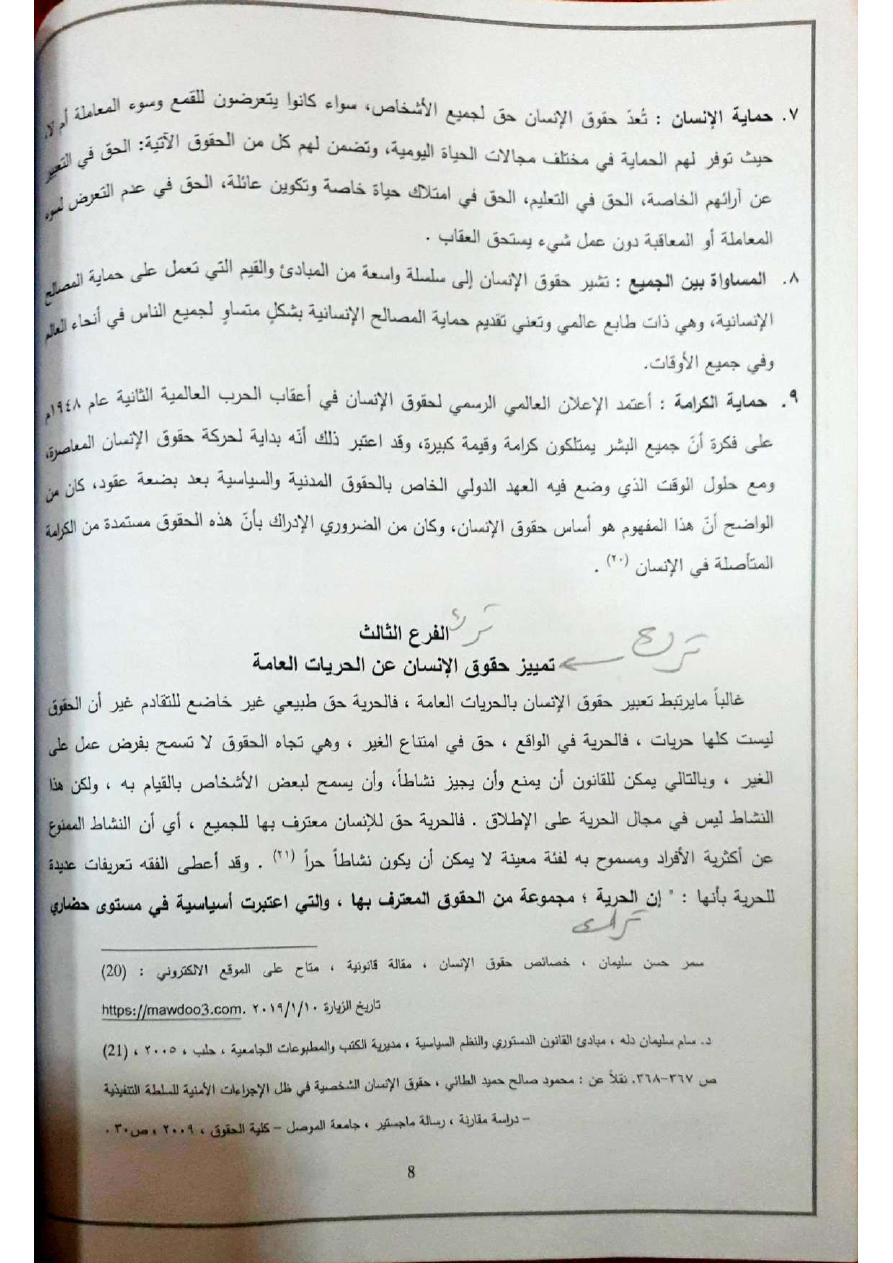 ٧. حماية الإنسان : تُعدّ حقوق الإنسان حق لجميع الأشخاص، سواء كانوا يتعرضون للقمع وسوء المعاملة أم لا،
حيث توفر لهم الحماية في مختلف مجالات الحياة اليومية، وتضمن لهم كل من الحقوق الآتية: الحق في التعبير
عن آرائهم الخاصة، الحق في التعليم، الحق في امتلاك حياة خاصة وتكوين عائلة، الحق في عدم التعرض لسوء
المعاملة أو المعاقبة دون عمل شيء يستحق العقاب .
٨. المساواة بين الجميع : تشير حقوق الإنسان إلى سلسلة واسعة من المبادئ والقيم التي تعمل على حماية المصالح
الإنسانية، وهي ذات طابع عالمي وتعني تقديم حماية المصالح الإنسانية بشكلٍ متساوٍ لجميع الناس في أنحاء العالم
وفي جميع الأوقات.
٩. حماية الكرامة : أعتمد الإعلان العالمي الرسمي لحقوق الإنسان في أعقاب الحرب العالمية الثانية عام ١٩٤٨م
على فكرة أنّ جميع البشر يمتلكون كرامة وقيمة كبيرة، وقد اعتبر ذلك أنّه بداية لحركة حقوق الإنسان المعاصرة،
ومع حلول الوقت الذي وضع فيه العهد الدولي الخاص بالحقوق المدنية والسياسية بعد بضعة عقود، كان من
الواضح أنّ هذا المفهوم هو أساس حقوق الإنسان، وكان من الضروري الإدراك بأنّ هذه الحقوق مستمدة من الكرامة
المتأصلة في الإنسان (٢٠) .
الفرع الثالث ترك
تمييز حقوق الإنسان عن الحريات العامة
غالباً مايرتبط تعبير حقوق الإنسان بالحريات العامة ، فالحرية حق طبيعي غير خاضع للتقادم غير أن الحقوق
ليست كلها حريات ، فالحرية في الواقع ، حق في امتناع الغير ، وهي تجاه الحقوق لا تسمح بفرض عمل على
الغير ، وبالتالي يمكن للقانون أن يمنع وأن يجيز نشاطاً، وأن يسمح لبعض الأشخاص بالقيام به ، ولكن هذا
النشاط ليس في مجال الحرية على الإطلاق . فالحرية حق للإنسان معترف بها للجميع ، أي أن النشاط الممنوع
عن أكثرية الأفراد ومسموح به لفئة معينة لا يمكن أن يكون نشاطاً حراً (٢١) . وقد أعطى الفقه تعريفات عديدة
للحرية بأنها : " إن الحرية ؛ مجموعة من الحقوق المعترف بها ، والتي اعتبرت أسياسية في مستوى حضاري
(20) سمر حسن سليمان ، خصائص حقوق الإنسان ، مقالة قانونية ، متاح على الموقع الالكتروني :
https://mawdoo3.com. تاريخ الزيارة ٢٠١٩/١/١٠
(21) د. سام سليمان دله ، مبادئ القانون الدستوري والنظم السياسية ، مديرية الكتب والمطبوعات الجامعية ، حلب ، ٢٠٠٥ ،
ص ٣٦٧-٣٦٨. نقلاً عن : محمود صالح حميد الطائي ، حقوق الإنسان الشخصية في ظل الإجراءات الأمنية للسلطة التنفيذية
– دراسة مقارنة ، رسالة ماجستير ، جامعة الموصل – كلية الحقوق ، ٢٠٠٩ ، ص٣٠ .
8